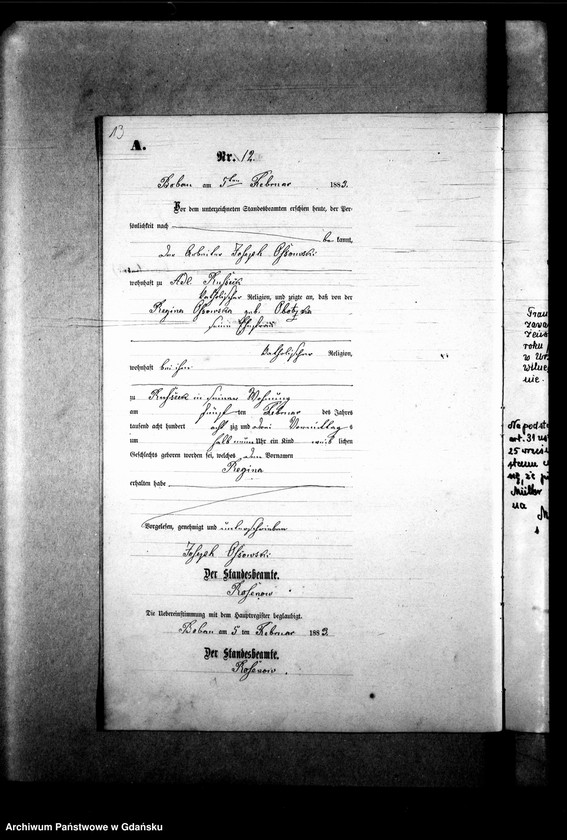 13
A.
Nr. 12.
Boban am 5ten Februar 1883.
Vor dem unterzeichneten Standesbeamten erschien heute, der Per-
sönlichkeit nach
be kannt,
der Arbeiter Joseph Ossowski
wohnhaft zu Adl.
katholischer Religion, und zeigte an, daß von der
Regina Ossowska geb.
seine Ehefrau
katholischer Religion,
wohnhaft bei ihm
zu in seiner Wohnung
am fünf ten Februar des Jahres
tausend acht hundert acht zig und drei Vormittag s
um halb neun Uhr ein Kind weib lichen
Geschlechts geboren worden sei, welches den Vornamen
Regina
erhalten habe
Vorgelesen, genehmigt und unterschrieben
Joseph Ossowski
Der Standesbeamte.
Rosenow
Die Uebereinstimmung mit dem Hauptregister beglaubigt.
Boban am 5 ten Februar 1883.
Der Standesbeamte.
Rosenow.
roku
w Urz
nie.
Na podst
art. 31 us
25
Müller
na
Archiwum Państwowe w Gdańsku